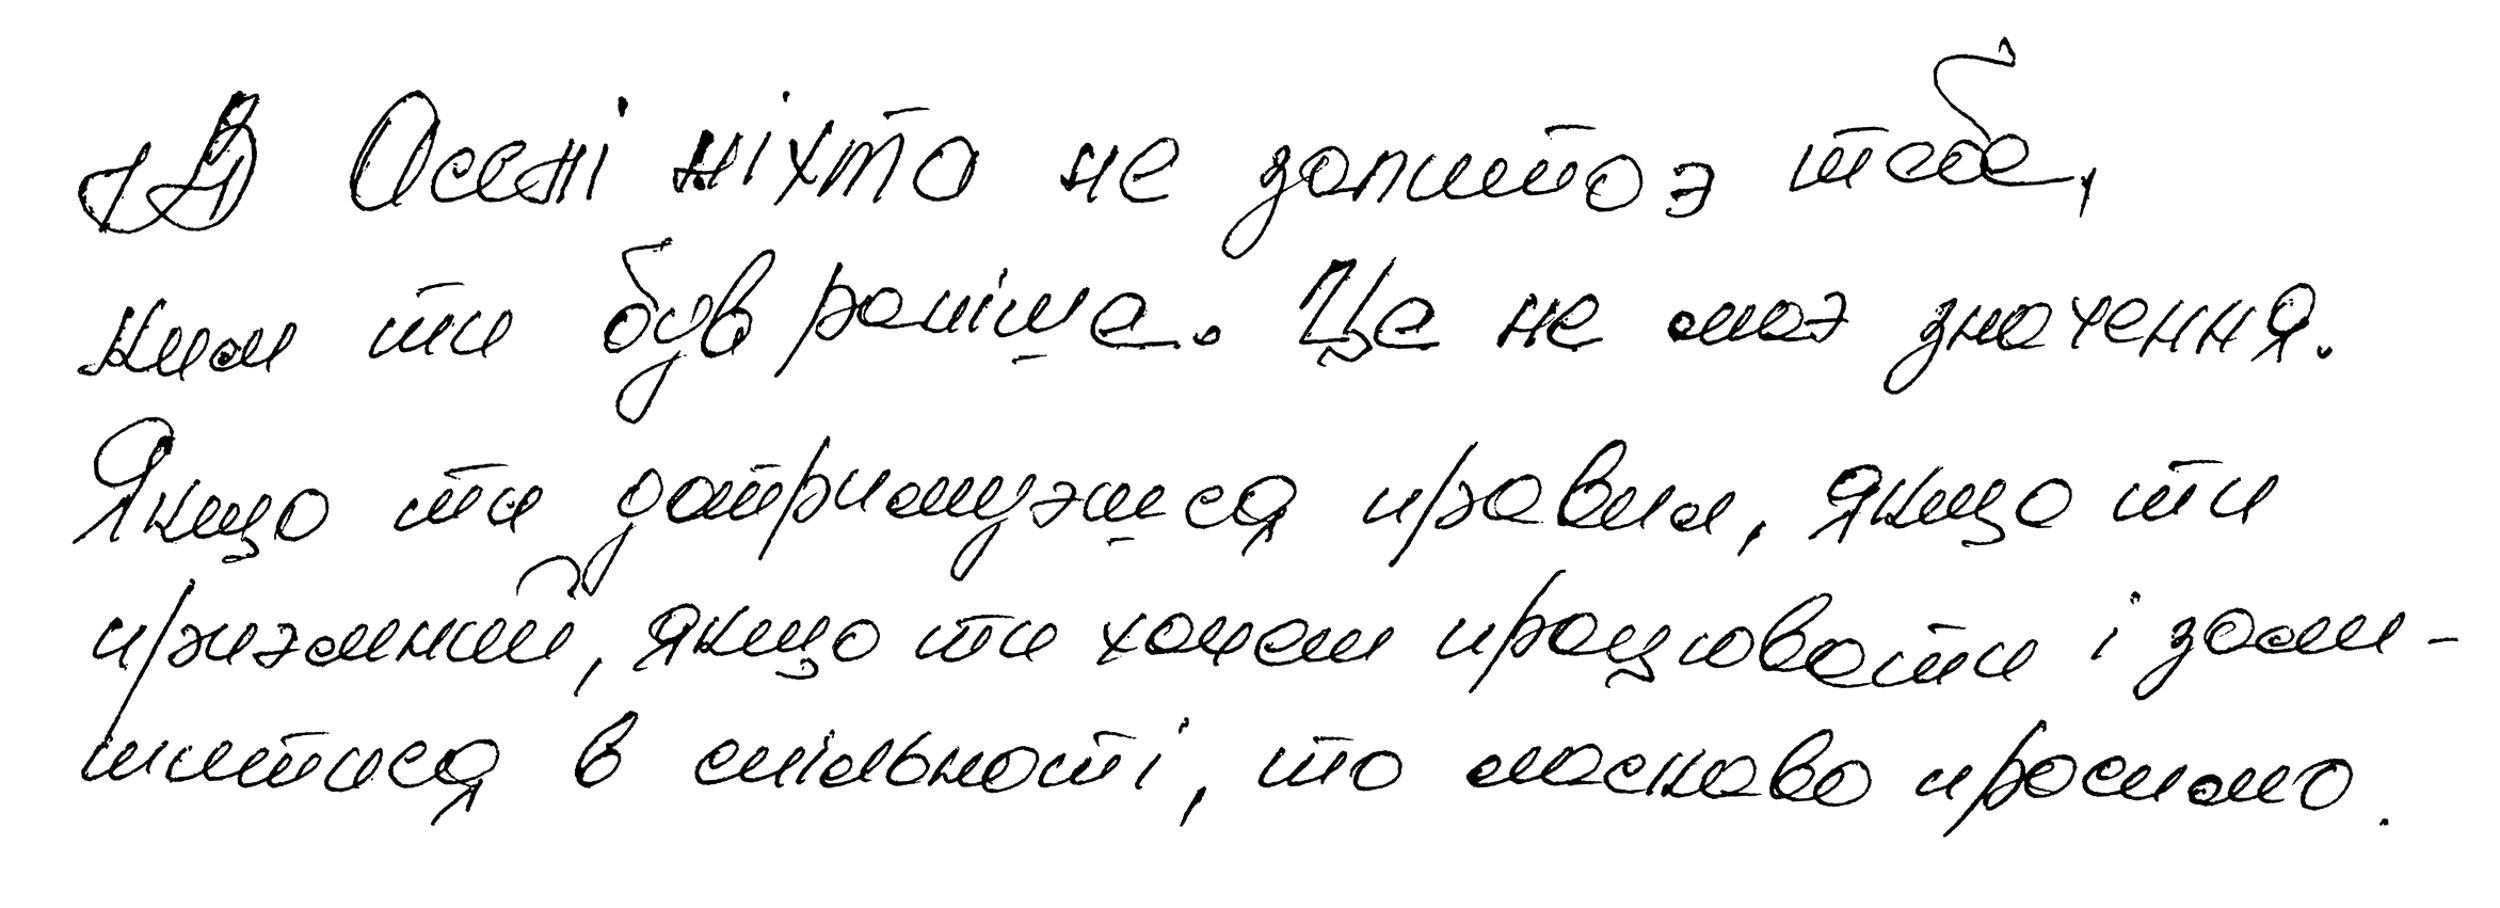 В Оселі ніхто не запитає тебе,
ким ти був раніше. Це не має значення.
Якщо ти дотримуєшся правил, якщо ти
приязний, якщо ти хочеш працювати і зали-
шитися в спільноті, то ласкаво просимо.